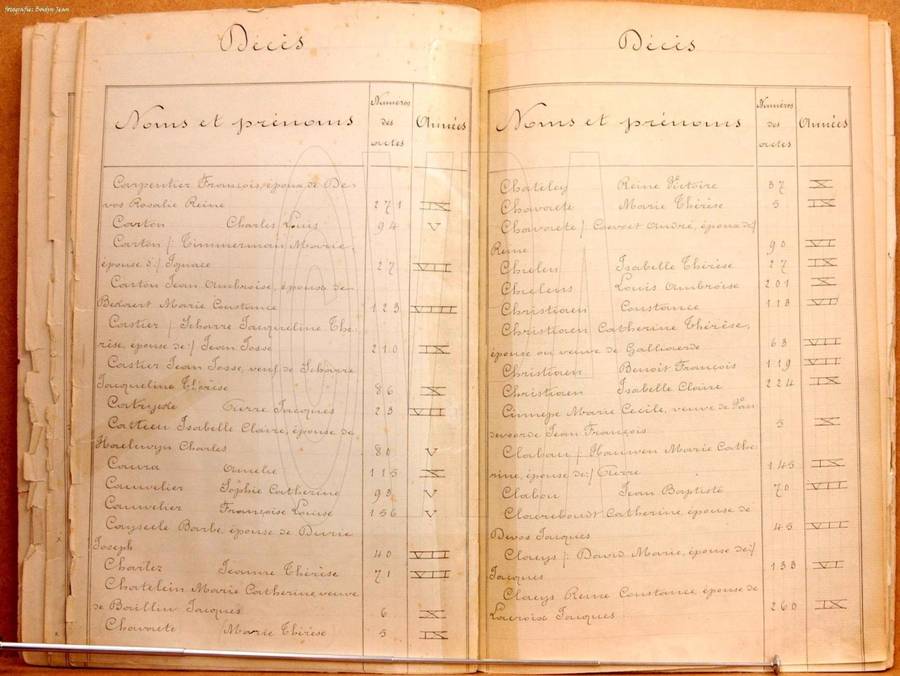 fotografie: Boidyn Jean
Décès
Noms et prénoms
Numéros des actes
Années
Carpentier François, époux de De-
vos Rosalie Reine 271 IX
Carton Charles Louis 94 V
Carton /: Timmerman Marie,
épouse d:/ Ignace 27 VII
Carton Jean Ambroise, époux de
Bedaert Marie Constance 123 VIII
Castier /: Scharre Jacqueline Thé-
rèse, épouse de:/ Jean Josse 210 IX
Castier Jean Josse, veuf de Scharre
Jacqueline Thérèse 86 X
Catrysse Pierre Jacques 23 VII
Catteeu Isabelle Claire, épouse de
Haelewyn Charles 80 V
Caura Amélie 115 X
Cauwelier Sophie Catherine 93 V
Cauwelier Françoise Louise 156 V
Cayseele Barbe, épouse de Durie
Joseph 40 VII
Charlez Jeanne Thérèse 71 VII
Chatelein Marie Catherine, veuve
de Baillin Jacques 6 X
Chavaete Marie Thérèse 5 IX
Décès
Noms et prénoms
Numéros des actes
Années
Chateley Reine Victoire 37 X
Chavaete Marie Thérèse 5 IX
Chavaete /: Caevoet André, époux de:/
Reine 90 VI
Chielen Isabelle Thérèse 27 IX
Chielens Louis Ambroise 201 X
Christiaen Constance 118 VI
Christiaen Catherine Thérèse,
épouse ou veuve de Galliaerde 63 VII
Christiaen Benoit François 119 VII
Christiaen Isabelle Claire 224 IX
Cinnepe Marie Cecile, veuve de Van
dewoorde Jean François 3 X
Clabau /: Hauwen Marie Cathe-
rine, épouse de:/ Pierre 145 IX
Clabau Jean Baptiste 70 VII
Claereboudt Catherine, épouse de
Devos Jacques 45 VII
Claeys /: David Marie, épouse de:/
Jacques 133 VI
Claeys Reine Constance, épouse de
Lacroise Jacques 260 IX